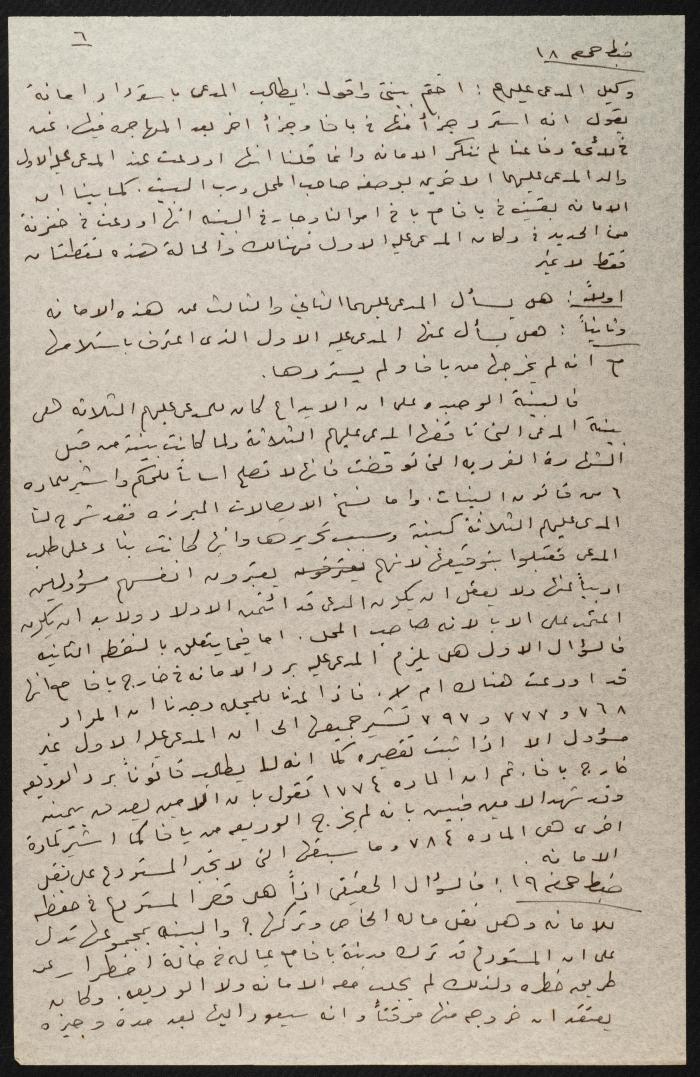 ٦
ضبط صحفه ١٨
وكيل المدعى عليهم : اختم بينتي واقول : يطالب المدعى باسترداد امانة
يقول انه استرد جزأ منها في يافا وجزأ اخر بعد المهاجره فيها. نحن
في لائحة دفاعنا لم ننكر الامانه وانما قلنا انها اودعت عند المدعى عليه الاول
والد المدعى عليهما الاخرين بوصفه صاحب المحل ورب البيت. كما بينا ان
الامانه بقيت في يافا مع باقي اموالنا وجاء في البينه انها اودعت في خزنة
من الحديد في دكان المدعى عليه الاول فهنالك والحالة هذه نقطتان
فقط لا غير
اولاً : هل يسأل المدعى عليهما الثاني والثالث عن هذه الامانه
وثانياً : هل يسأل عنها المدعى عليه الاول الذي اعترف باستلامها
مع انه لم يخرجها من يافا ولم يستردها .
فالبينة الوحيده على ان الايداع كان للمدعى عليهم الثلاثة هي
بينة المدعى التي ناقضها المدعى عليهم الثلاثة ولما كانت بينة من قبل
الشهادة الفرديه التي نوقضت فانها لا تصلح اساساً للحكم واشير للماده
٦ من قانون البينات. واما نسخ الايصالات المبرزه فقد شرح لنا
المدعى عليهم الثلاثة كبينة وسبب تحريرها وانها كانت بناء على طلب
المدعى فقبلوا بتوقيعها لانهم يعتبرون انفسهم مسؤولين
ادبياً عنها ولا يعقل ان يكون المدعى قد ائتمن الاولاد ولا بد ان يكون
اعتمد على الاب لانه صاحب المحل . اما فيما يتعلق بالنقطه الثانيه
فالسؤال الاول هل يلزم المدعى عليه برد الامانه في خارج يافا مع انها
قد اودعت هناك ام لا. فاذا عدنا للمجله وجدنا ان المواد
٧٦٨ و ٧٧٧ و ٧٩٧ تشير جميعها الى ان المدعى عليه الاول غير
مسؤول الا اذا ثبت تقصيره كما انه لا يطالب قانوناً برد الوديعه
خارج يافا . ثم ان الماده ١٧٧٤ تقول بان الامين يصدق بيمينه
وقد شهد الامين فبين بانه لم يخرج الوديعه من يافا كما اشير لمادة
اخرى هي الماده ٧٨٤ وما سبقها التي لا تجبر المستودع على نقل
الامانه .
ضبط صحفه ١٩ : فالسؤال الحقيقي اذاً هل قصر المستودع في حفظه
للامانه وهل نقل ماله الخاص وتركها ؟ والبينه بمجموعها تدل
على ان المستودع قد ترك مدينة يافا مع عياله في حالة اضطرار عن
طريق خطره ولذلك لم يجلب معه الامانه ولا الوديعه . وكان
يعتقد ان خروجه منها موقتاً وانه سيعود اليها بعد مدة وجيزه